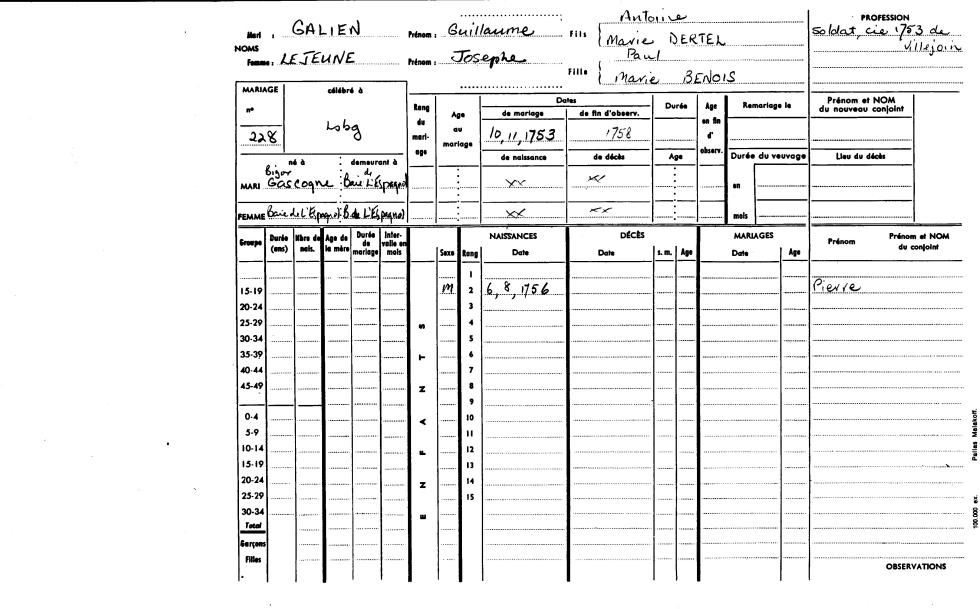 Mari : GALIEN Prénom : Guillaume Fils { Antoine
Marie DERTEL
NOMS
Femme : LEJEUNE Prénom : Josephe Fille { Paul
Marie BENOIS
PROFESSION
soldat, cie 1753 de
Villejoin
MARIAGE célébré à
n°
228 Lsbg
né à demeurant à
MARI Bigor Gascogne Baie de L'Espagnol
FEMME Baie de L'Espagnol B. de L'Espagnol
Rang du mariage
Age au mariage
Dates
de mariage de fin d'observ.
10, 11, 1753 1758
de naissance de décès
xx xx
xx xx
Durée
Age
Age en fin d'observ.
Remariage le
Durée du veuvage
en
mois
Prénom et NOM
du nouveau conjoint
Lieu du décès
Groupe Durée (ans) Nbre de nais. Age de la mère Durée de mariage Intervalle en mois
ENFANTS
Sexe Rang
NAISSANCES DÉCÈS MARIAGES
Date Date s. m. Age Date Age Prénom Prénom et NOM du conjoint
1
15-19 M 2 6, 8, 1756 Pierre
20-24 3
25-29 4
30-34 5
35-39 6
40-44 7
45-49 8
9
0-4 10
5-9 11
10-14 12
15-19 13
20-24 14
25-29 15
30-34
Total
Garçons
Filles
OBSERVATIONS
100.000 ex. Pairies Malakoff.